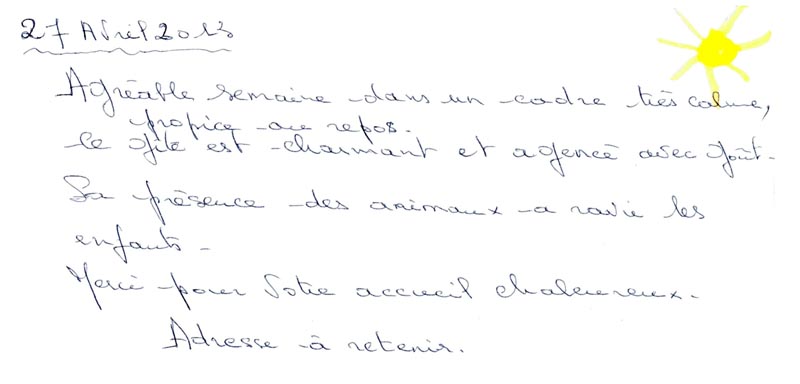 27 Avril 2013
Agréable semaine dans un cadre très calme,
propice au repos.
Le gîte est charmant et agencé avec goût.
La présence des animaux a ravie les
enfants.
Merci pour Votre accueil chaleureux.
Adresse à retenir.